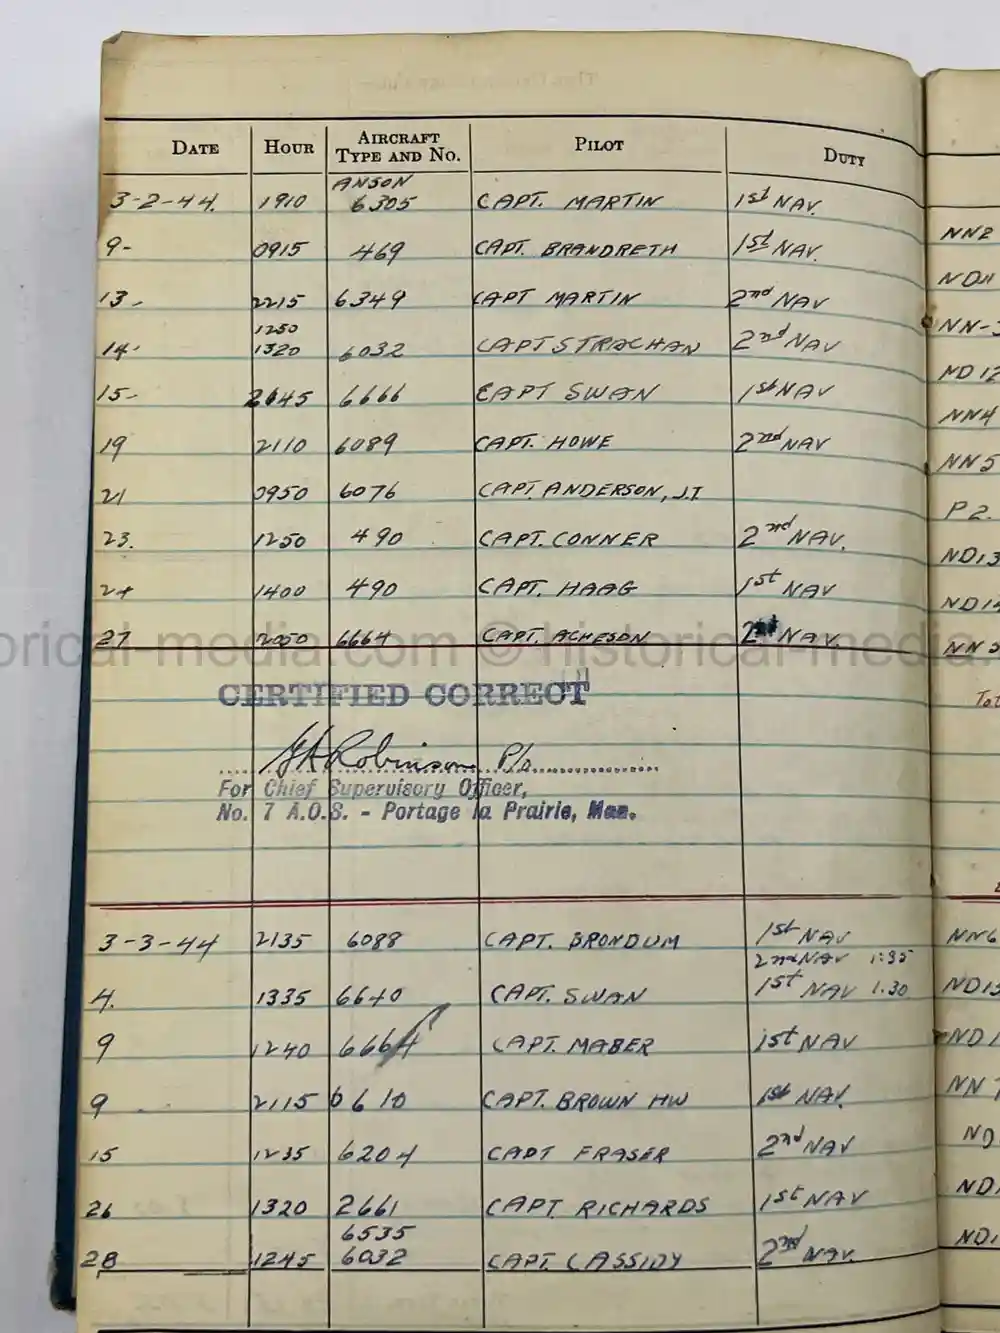 DATE HOUR AIRCRAFT TYPE AND NO. PILOT DUTY
3-2-44. 1910 ANSON 6305 CAPT. MARTIN 1st NAV. NN2
9- 0915 469 CAPT. BRANDRETH 1st NAV. ND11
13- 2215 6349 CAPT MARTIN 2nd NAV NN-
1250
14- 1320 6032 CAPT STRACHAN 2nd NAV ND12
15- 2145 6666 CAPT SWAN 1st NAV NN4
19 2110 6089 CAPT. HOWE 2nd NAV NN5
21 0950 6076 CAPT. ANDERSON, J.T P2.
23. 1250 490 CAPT. CONNER 2nd NAV. ND13
24 1400 490 CAPT. HAAG 1st NAV ND14
27 2050 6664 CAPT. ACHESON 2nd NAV. NN
orical-media.com © historical-media.
CERTIFIED CORRECT Tot
Robinson P/o
For Chief Supervisory Officer,
No. 7 A.O.S. - Portage la Prairie, Man.
3-3-44 2135 6088 CAPT. BRONDUM 1st NAV NN6
2nd NAV 1:35
4. 1335 6640 CAPT. SWAN 1st NAV 1.30 ND15
9 1240 6664 CAPT. MABER 1st NAV ND1
9 2115 6610 CAPT. BROWN HW 1st NAV. NN
15 1235 6204 CAPT FRASER 2nd NAV ND
26 1320 2661 CAPT. RICHARDS 1st NAV ND
6535
28 1245 6032 CAPT. CASSIDY 2nd NAV. ND1